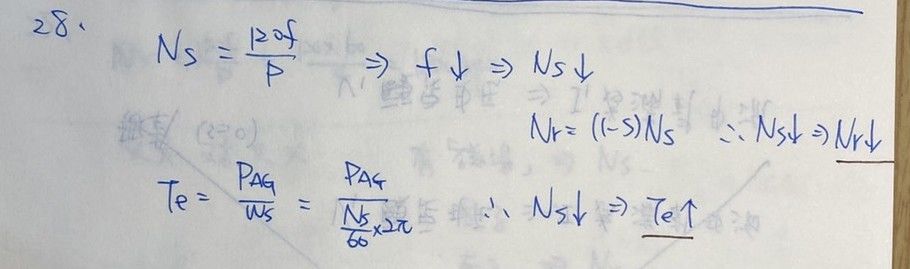 28.
Ns = 120f/P ⇒ f↓ ⇒ Ns↓
Nr = (1-S)Ns ∵ Ns↓ ⇒ Nr↓
Te = PAG/Ws = PAG/(Ns/60 × 2π) ∴ Ns↓ ⇒ Te↑